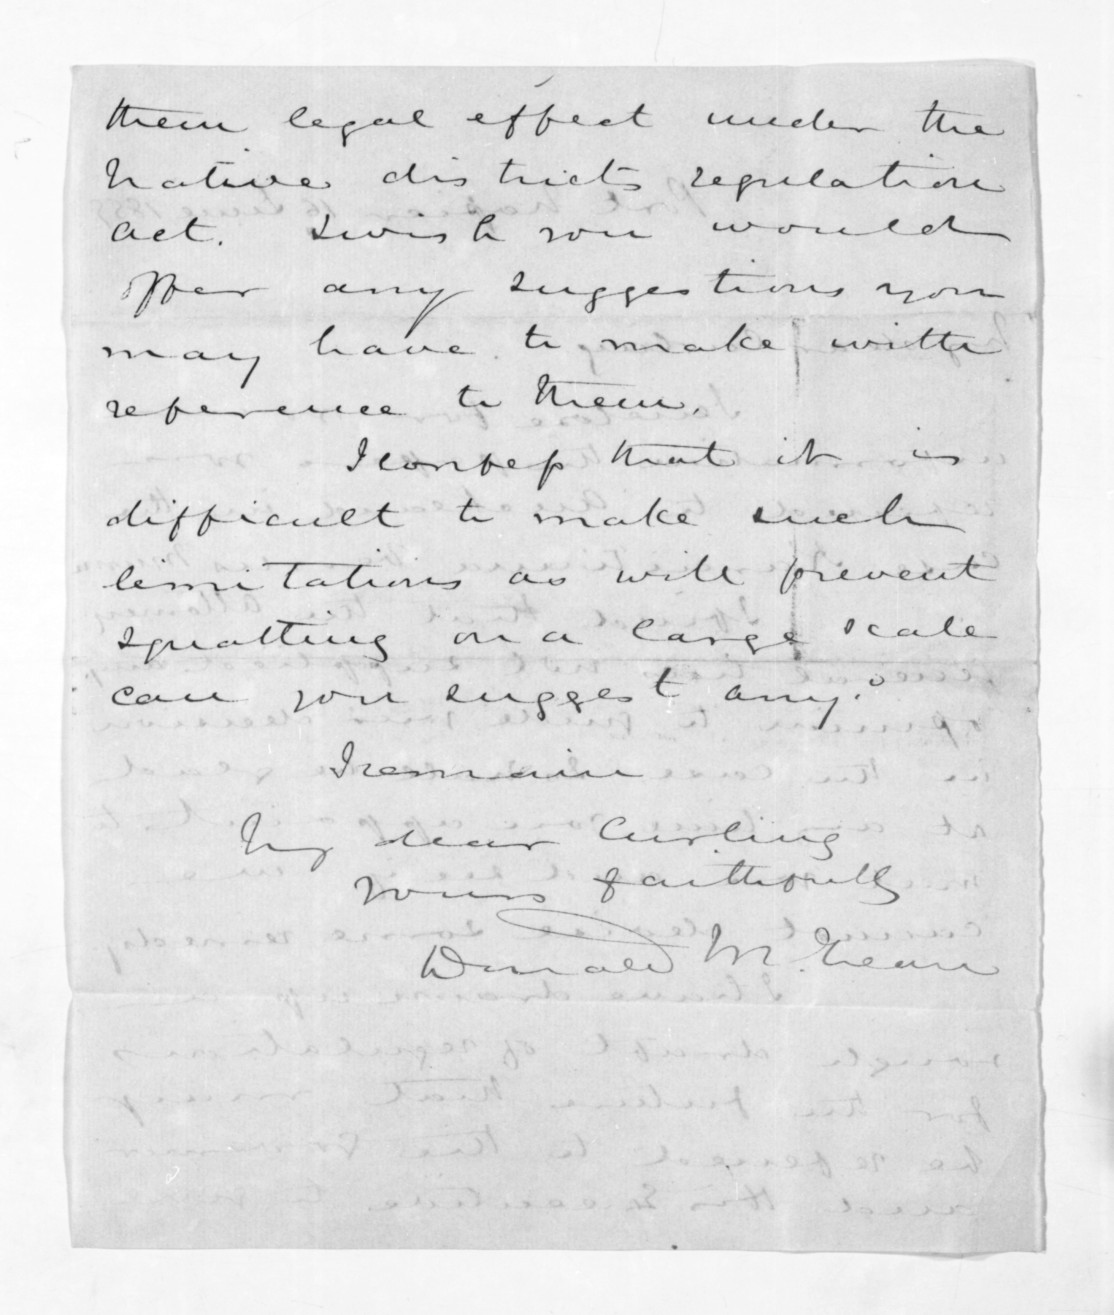 them legal effect under the
Native districts regulation
act. I wish you would
offer any suggestions you
may have to make with
reference to them.
I confess that it is
difficult to make such
limitations as will prevent
squatting on a large scale
can you suggest any?
I remain
My dear Curling
yours faithfully
Donald McLean